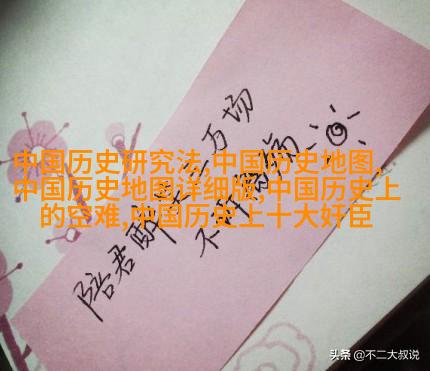 中国历史研究法,中国历史地图,
中国历史地图详细版,中国历史上
的空难,中国历史上十大奸臣
陪君醉笑三万场
不诉离殇
头条 @不二大叔说